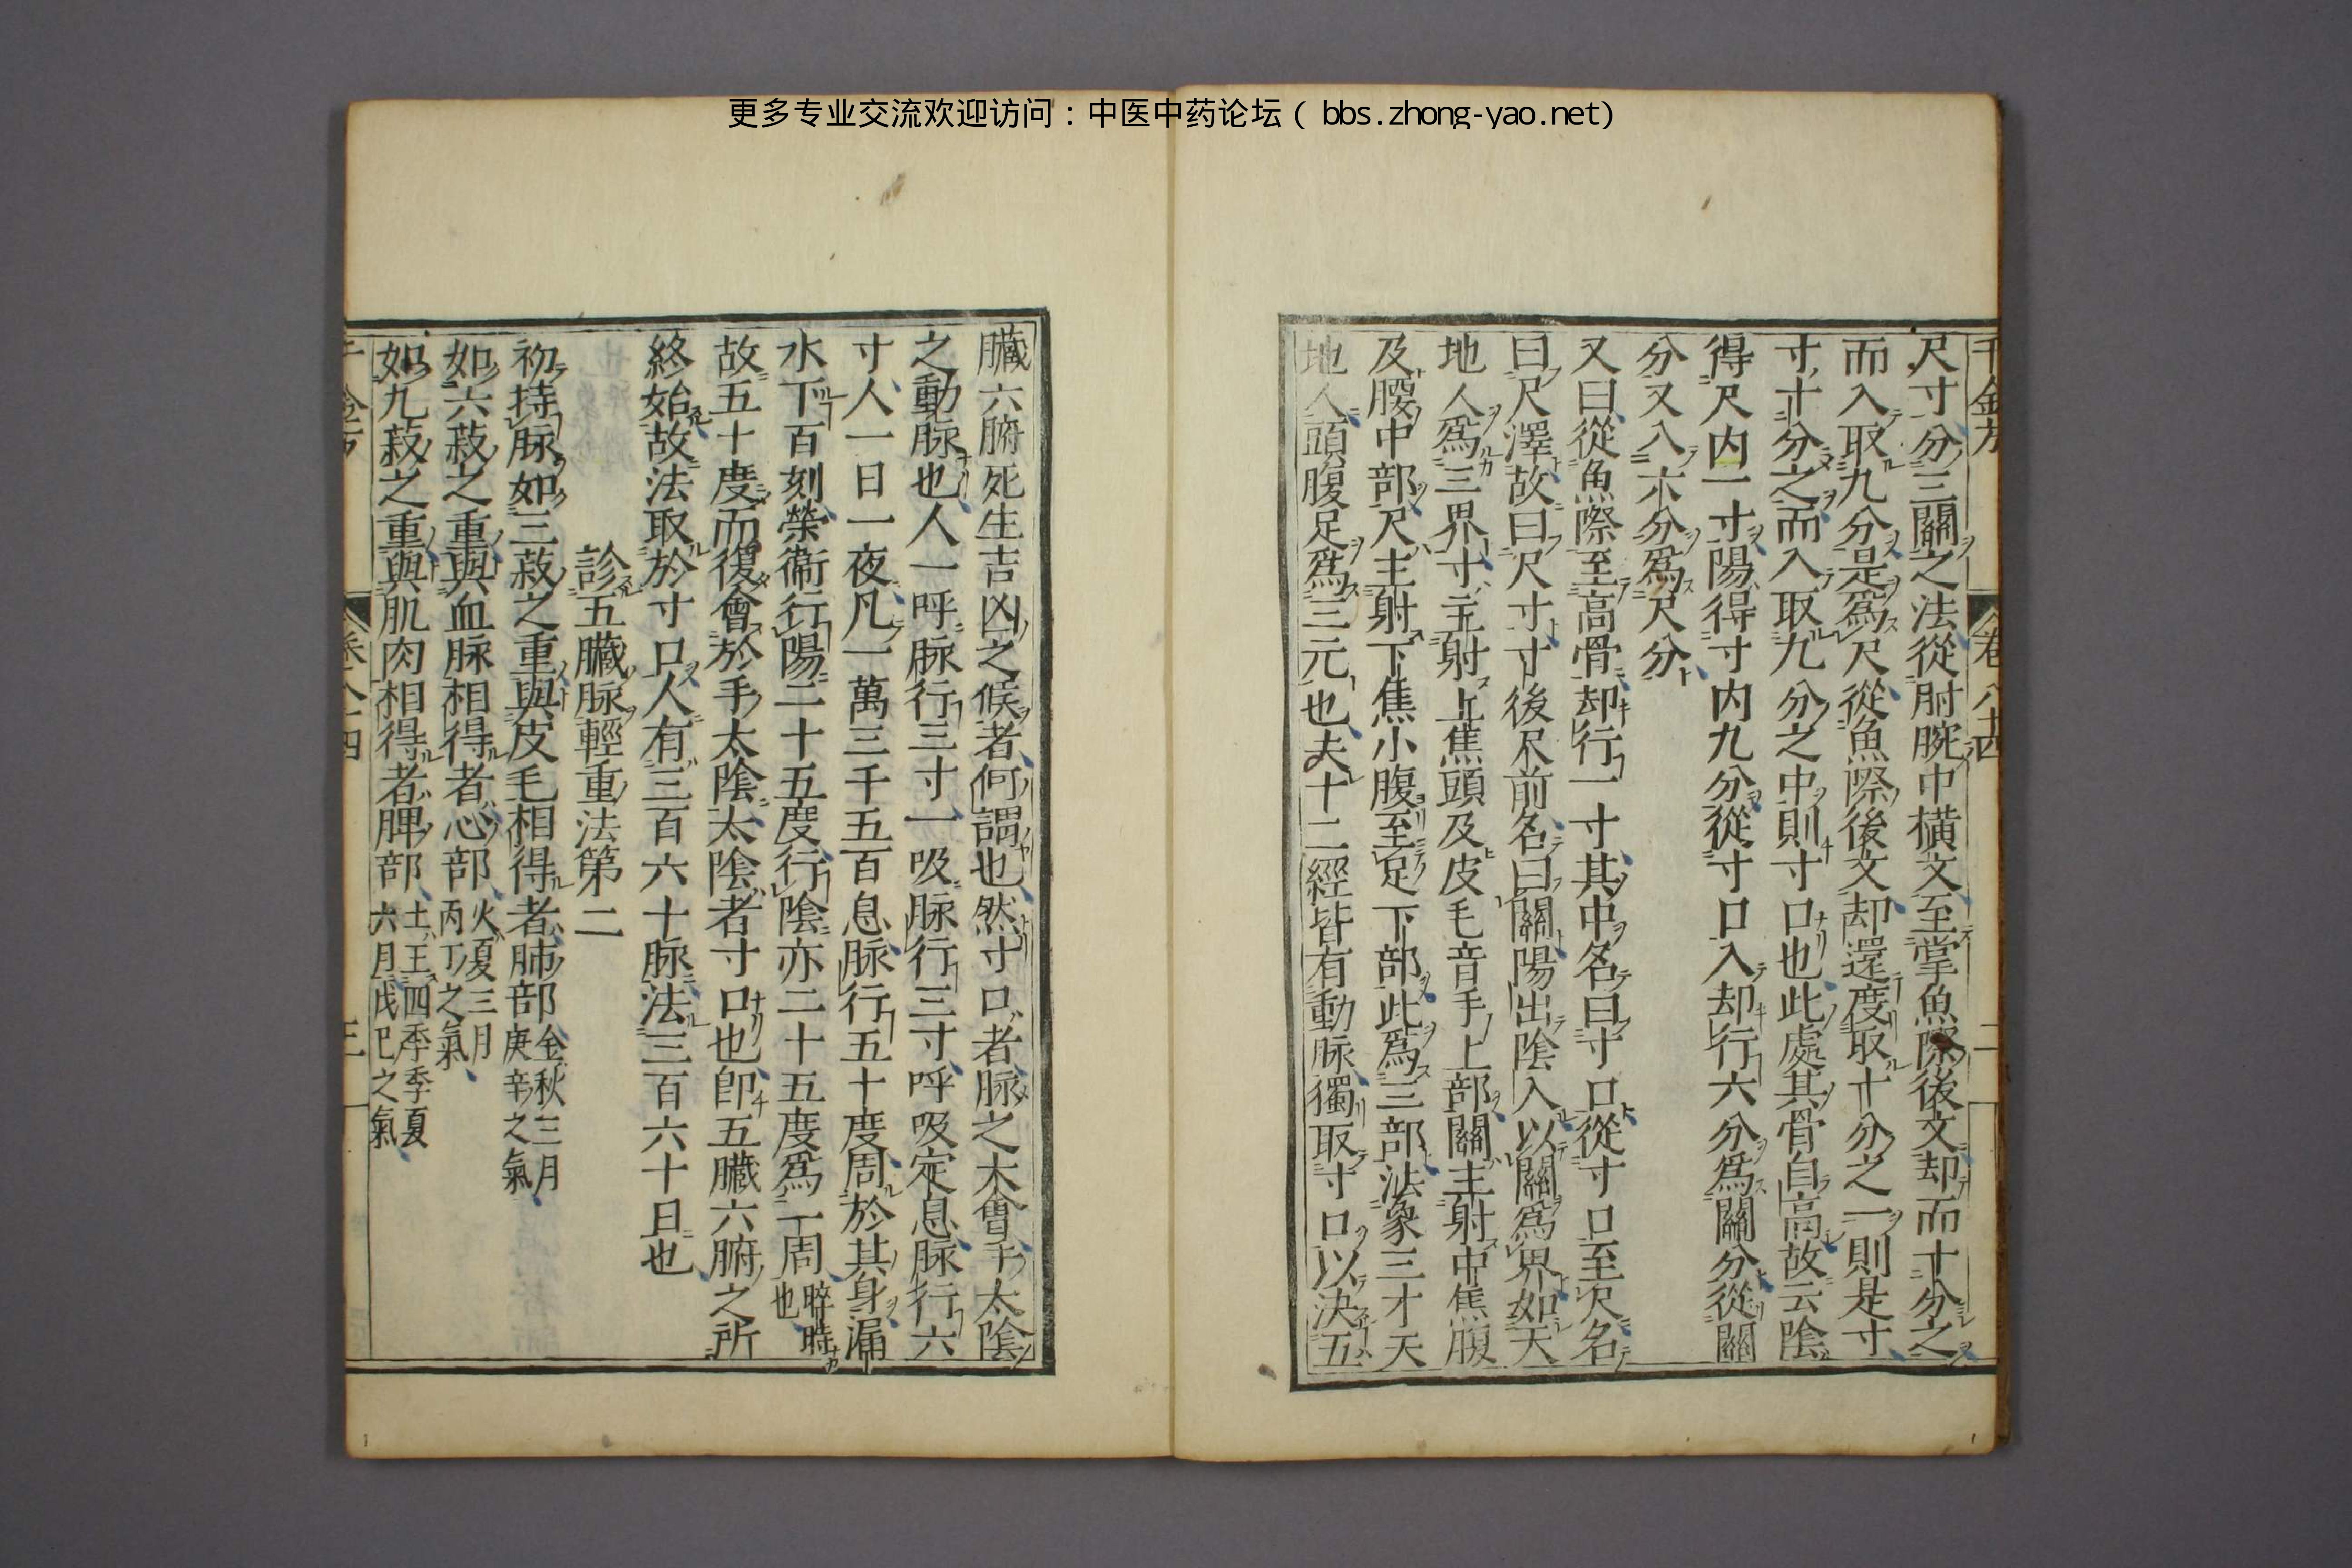 更多专业交流欢迎访问：中医中药论坛（bbs.zhong-yao.net）
尺寸分三關之法從肘腕中橫文至掌魚際後文却而十分之
而入取九分是爲尺從魚際後文却還度取十分之一則是寸
寸十分之而入取九分之中則寸口也此處其骨自高故云陰
得尺内一寸陽得寸内九分從寸口入却行六分爲關分從關
分又入六分爲尺分
又曰從魚際至高骨却行一寸其中名曰寸口從寸口至尺名
曰尺澤故曰尺寸寸後尺前名曰關陽出陰入以關爲界如天
地人爲三界寸主射上焦頭及皮毛音手上部關主射中焦腹
及腰中部尺主射下焦小腹至足下部此爲三部法象三才天
地人頭腹足爲三元也夫十二經皆有動脉獨取寸口以決五
臓六腑死生吉凶之候者何謂也然寸口者脉之大會手太陰
之動脉也人一呼脉行三寸一吸脉行三寸呼吸定息脉行六
寸人一日一夜凡一萬三千五百息脉行五十度周於其身漏
水下百刻榮衞行陽二十五度行陰亦二十五度爲一周晬時也
故五十度而復會於手太陰太陰者寸口也卽五臓六腑之所
終始故法取於寸口人有三百六十脉法三百六十日也
診五臓脉輕重法第二
初持脉如三菽之重與皮毛相得者肺部金秋三月庚辛之氣
如六菽之重與血脉相得者心部火夏三月丙丁之氣
如九菽之重與肌肉相得者脾部土王四季季夏六月戊己之氣